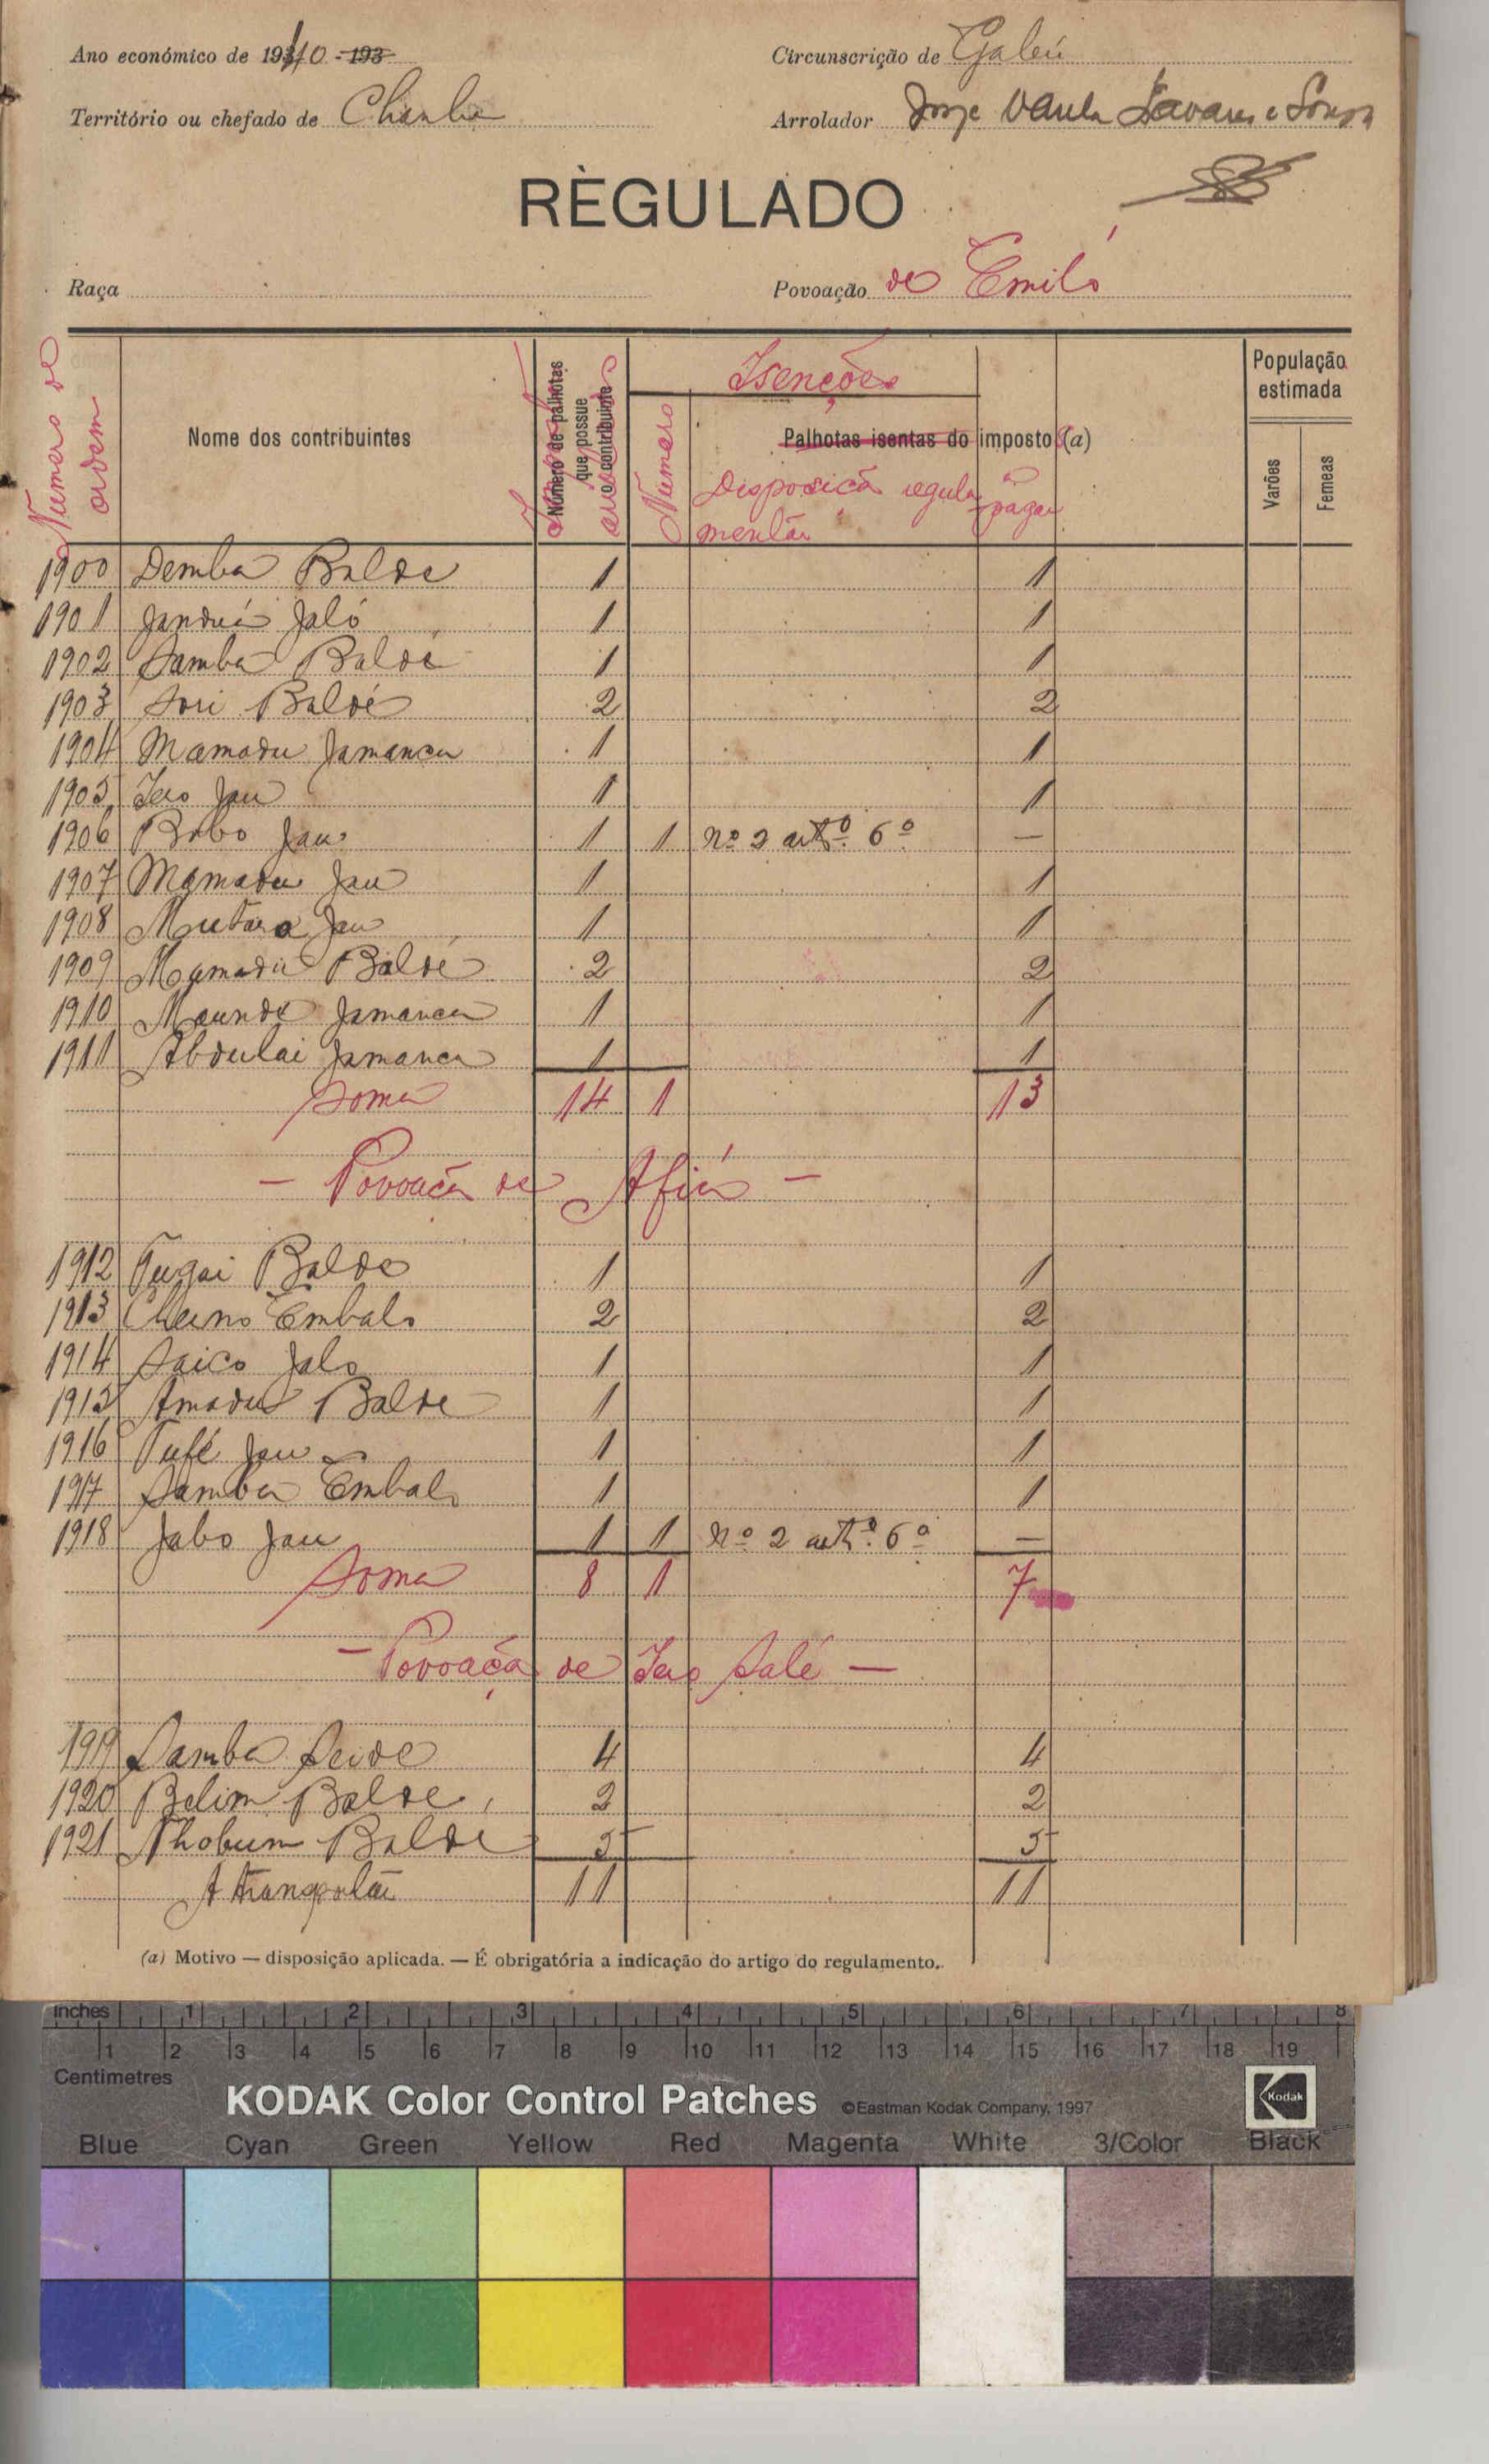 Ano económico de 1940 - 193
Circunscrição de Gabú
Território ou chefado de Chanha
Arrolador Jorge Tavares e Sousa
RÈGULADO
Raça
Povoação de Emiló
Numero de ordem
Nome dos contribuintes
Número de palhotas que possue o contribuinte
Isenções
Numero
Palhotas isentas do imposto (a)
Disposição regulamentar
a pagar
População estimada
Varões
Femeas
1900 Demba Balde 1 1
1901 Janduá Jaló 1 1
1902 Samba Baldé 1 1
1903 Sori Baldé 2 2
1904 Mamadu Jamanca 1 1
1905 Iero Jau 1 1
1906 Bobo Jau 1 1 nº 2 artº. 6º —
1907 Mamadu Jau 1 1
1908 Mutaro Jau 1 1
1909 Mamadú Baldé 2 2
1910 Maunde Jamanca 1 1
1911 Abdulai Jamanca 1 1
Soma 14 1 13
— Povoação de Afiá —
1912 Tugai Balde 1 1
1913 Cherno Embalo 2 2
1914 Saico Jalo 1 1
1915 Amadu Balde 1 1
1916 Tufé Jau 1 1
1917 Samba Embalo 1 1
1918 Jabo Jau 1 1 Nº 2 artº. 6º —
Soma 8 1 7
— Povoação de Iero Salé —
1919 Samba Seide 4 4
1920 Belim Balde 2 2
1921 Thobum Balde 5 5
A transportar 11 11
(a) Motivo — disposição aplicada. — É obrigatória a indicação do artigo do regulamento.
inches 1 2 3 4 5 6 7 8
1 2 3 4 5 6 7 8 9 10 11 12 13 14 15 16 17 18 19
Centimetres
KODAK Color Control Patches ©Eastman Kodak Company, 1997
Kodak
Blue Cyan Green Yellow Red Magenta White 3/Color Black